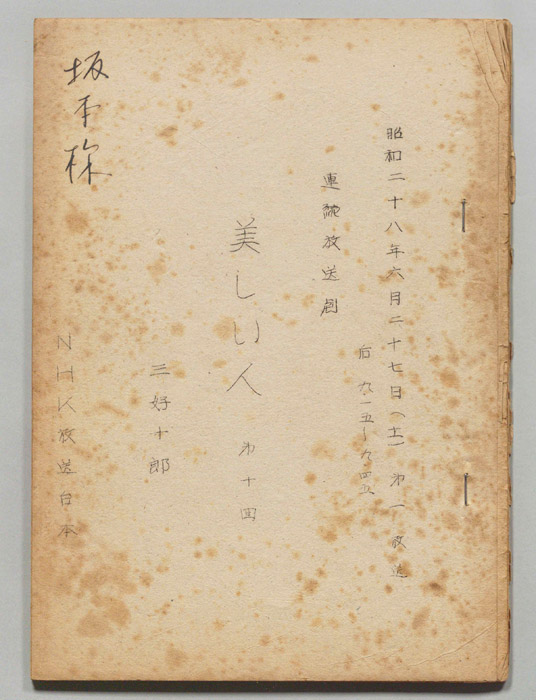 昭和二十八年六月二十七日(土)第一放送
后 九一五〜九四五
連続放送劇
美しい人 第十回
三好十郎
坂本様
NHK放送台本